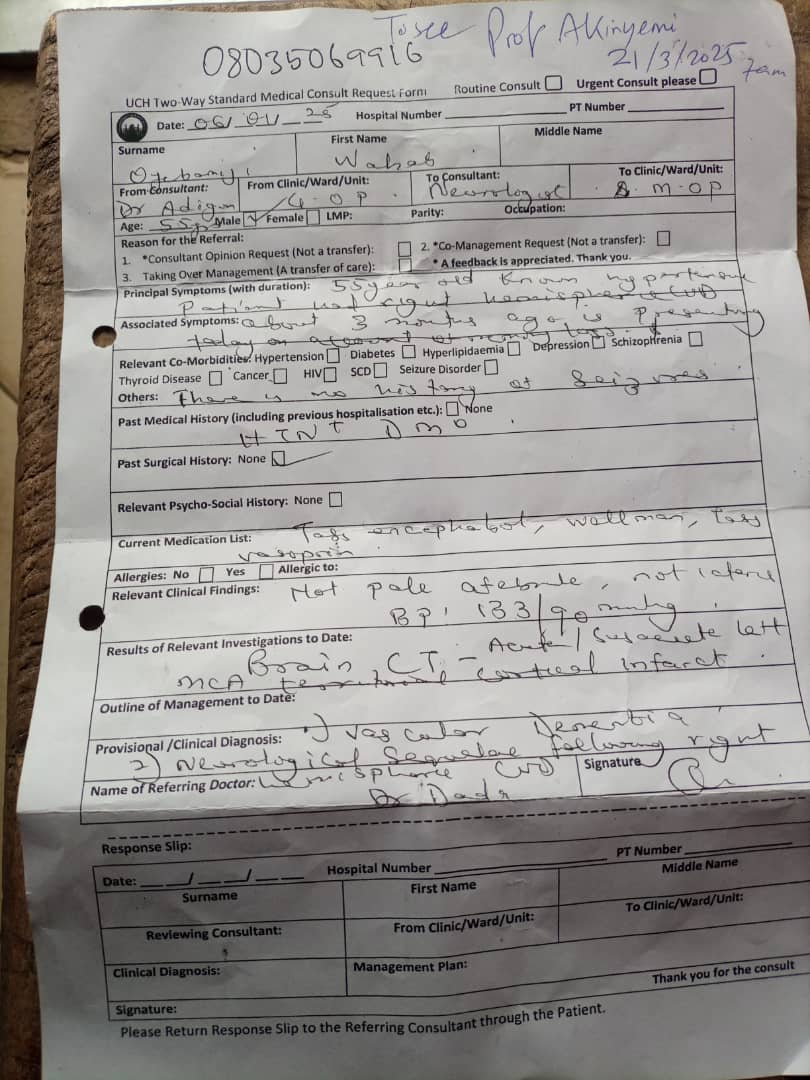 To see Prof Akinyemi
08035069916
21/3/2025
7am
UCH Two-Way Standard Medical Consult Request Form Routine Consult Urgent Consult please
Date: 06/01/25 Hospital Number PT Number
Surname First Name Middle Name
Wahab
From Consultant: From Clinic/Ward/Unit: To Consultant: To Clinic/Ward/Unit:
Dr Adigun G.O.P. Neurologist M.O.P
Age: 55yrs Male Female LMP: Parity: Occupation:
Reason for the Referral:
1. *Consultant Opinion Request (Not a transfer): 2. *Co-Management Request (Not a transfer):
3. Taking Over Management (A transfer of care): * A feedback is appreciated. Thank you.
Principal Symptoms (with duration): 55year old known hypertensive
patient had right hemisphere CVD
Associated Symptoms: about 3 months ago is presenting
today on account of memory loss.
Relevant Co-Morbidities: Hypertension Diabetes Hyperlipidaemia Depression Schizophrenia
Thyroid Disease Cancer HIV SCD Seizure Disorder
Others: There is no history of Seizures
Past Medical History (including previous hospitalisation etc.): None
HTN + DM
Past Surgical History: None
Relevant Psycho-Social History: None
Current Medication List: Tabs encephabol, wellman, Tabs
vasoprin
Allergies: No Yes Allergic to:
Relevant Clinical Findings: Not pale afebrile, not icteric
BP: 133/90 mmHg.
Results of Relevant Investigations to Date:
Brain CT - Acute/Subacute left
MCA territorial cortical infarct.
Outline of Management to Date:
Provisional /Clinical Diagnosis: 1) Vascular Dementia
2) Neurological Sequelae following right
hemisphere CVD
Name of Referring Doctor: Dr Dada Signature
Response Slip:
Date: __/__/__ Hospital Number PT Number
Surname First Name Middle Name
Reviewing Consultant: From Clinic/Ward/Unit: To Clinic/Ward/Unit:
Clinical Diagnosis: Management Plan:
Thank you for the consult
Signature:
Please Return Response Slip to the Referring Consultant through the Patient.